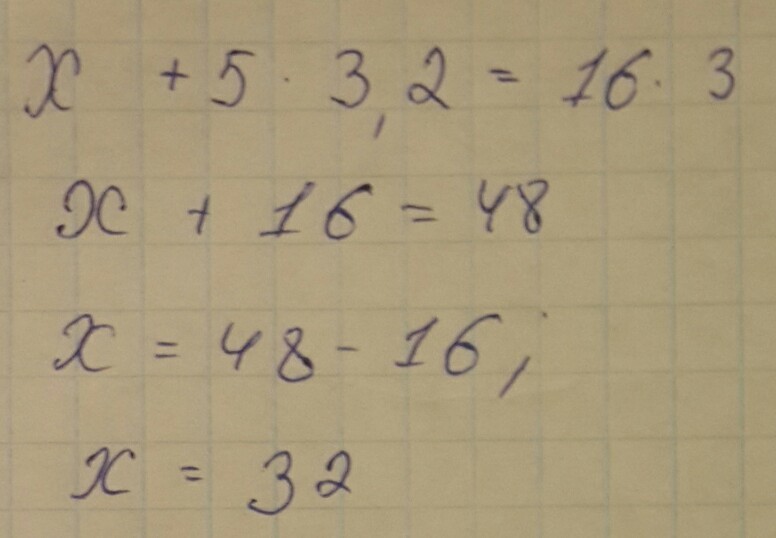 x + 5 · 3,2 = 16 · 3
x + 16 = 48
x = 48 - 16;
x = 32